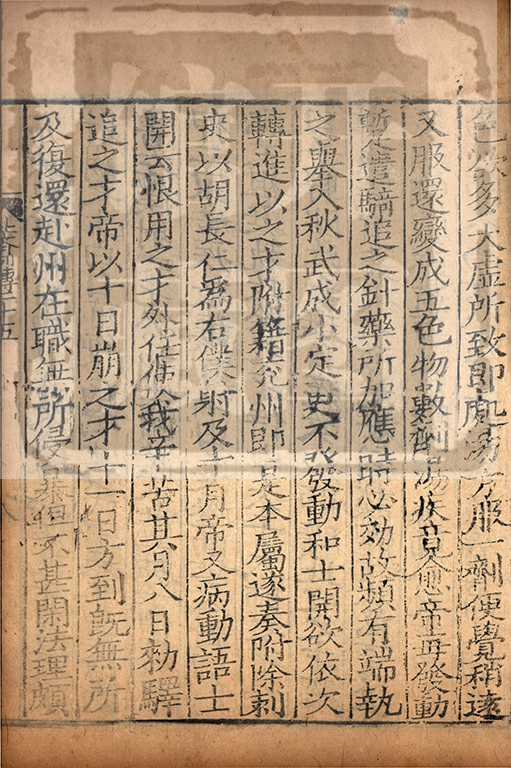 色欲多大虛所致即處湯方服一劑便覺稍遠
又服還變成五色物數劑湯疾竟愈帝每發動
蹔遣騎追之針藥所加應時必效故頻有端執
之舉入秋武成小定更不發動和士開欲依次
轉進以之才附籍兖州即是本屬遂奏附除刺
史以胡長仁為右僕射及十月帝又病動語士
開云恨用之才外任使我辛苦其月八日勑驛
追之才帝以十日崩之才十一日方到旣無所
及復還赴州在職無所侵暴但不甚閑法理頗